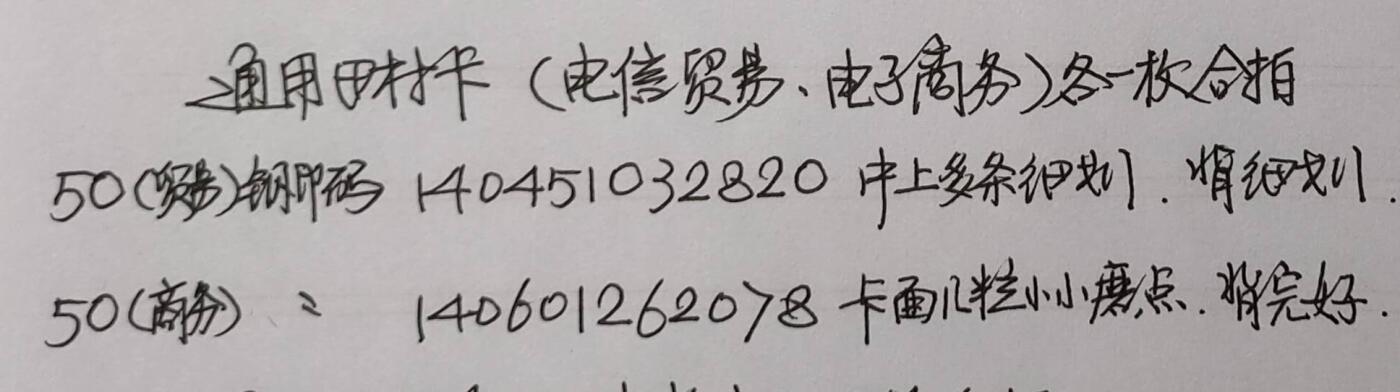 通用田村卡（电信贸易、电子商务）各一枚合拍
50(贸易)钢印码 140451032820 中上多条细划. 背细划.
50(商务) 〃 140601262078 卡面几粒小小磨点. 背完好.